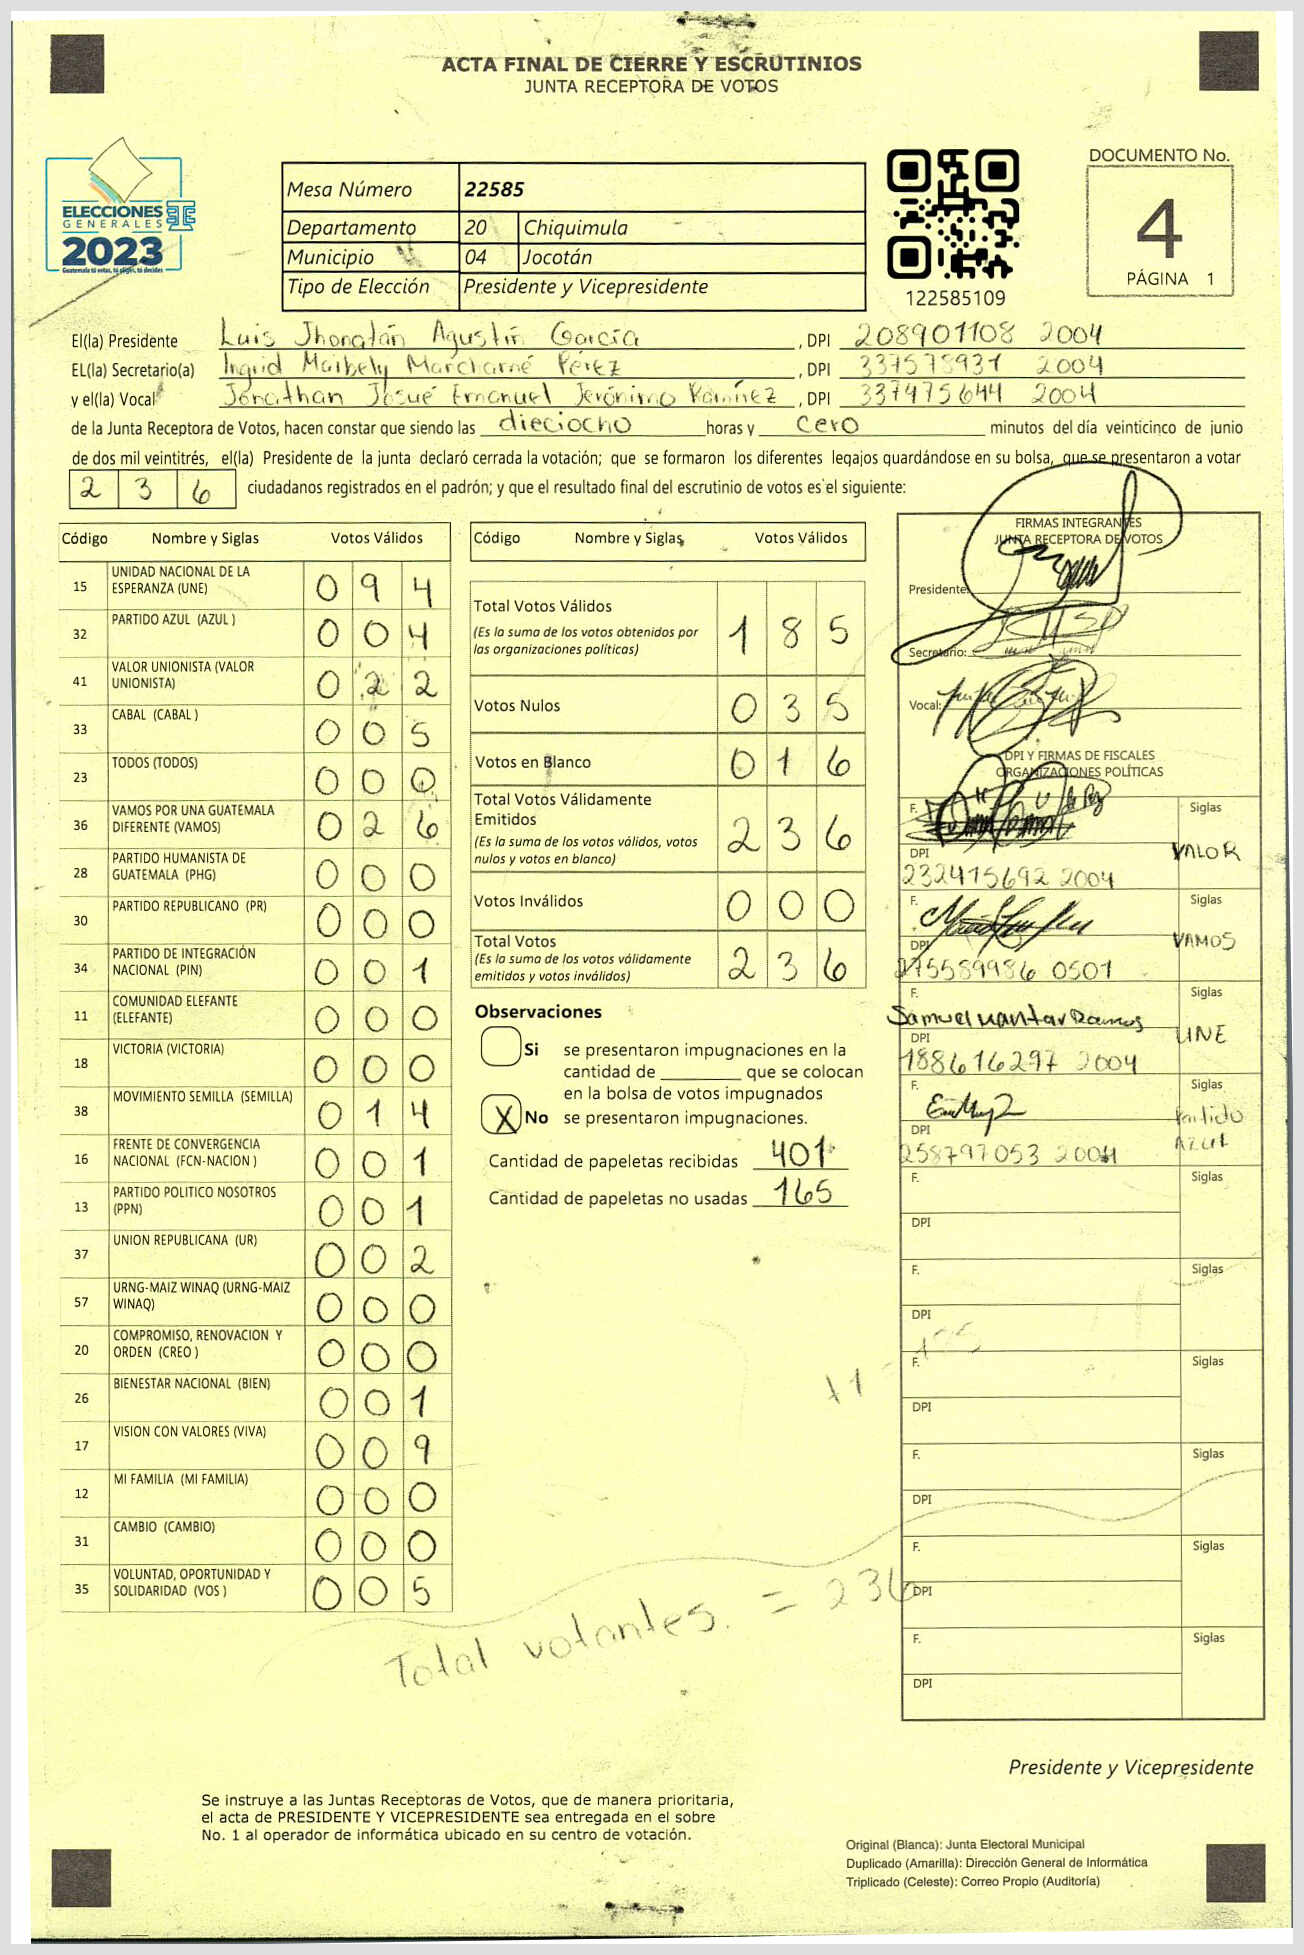 ACTA FINAL DE CIERRE Y ESCRUTINIOS
JUNTA RECEPTORA DE VOTOS
ELECCIONES
GENERALES
2023
Guatemala tú votas, tú eliges, tú decides
Mesa Número 22585
Departamento 20 Chiquimula
Municipio 04 Jocotán
Tipo de Elección Presidente y Vicepresidente
122585109
DOCUMENTO No.
4
PÁGINA 1
El(la) Presidente Luis Jhonatán Agustín García, DPI 208901108 2004
EL(la) Secretario(a) Ingrid Maibely Marcharné Pérez, DPI 337578931 2004
y el(la) Vocal Jonathan Josué Emanuel Jerónimo Ramírez, DPI 337475644 2004
de la Junta Receptora de Votos, hacen constar que siendo las dieciocho horas y cero minutos del día veinticinco de junio
de dos mil veintitrés, el(la) Presidente de la junta declaró cerrada la votación; que se formaron los diferentes legajos guardándose en su bolsa, que se presentaron a votar
236 ciudadanos registrados en el padrón; y que el resultado final del escrutinio de votos es el siguiente:
Código Nombre y Siglas Votos Válidos
15 UNIDAD NACIONAL DE LA ESPERANZA (UNE) 094
32 PARTIDO AZUL (AZUL ) 004
41 VALOR UNIONISTA (VALOR UNIONISTA) 022
33 CABAL (CABAL ) 005
23 TODOS (TODOS) 000
36 VAMOS POR UNA GUATEMALA DIFERENTE (VAMOS) 026
28 PARTIDO HUMANISTA DE GUATEMALA (PHG) 000
30 PARTIDO REPUBLICANO (PR) 000
34 PARTIDO DE INTEGRACIÓN NACIONAL (PIN) 001
11 COMUNIDAD ELEFANTE (ELEFANTE) 000
18 VICTORIA (VICTORIA) 000
38 MOVIMIENTO SEMILLA (SEMILLA) 014
16 FRENTE DE CONVERGENCIA NACIONAL (FCN-NACION ) 001
13 PARTIDO POLITICO NOSOTROS (PPN) 001
37 UNION REPUBLICANA (UR) 002
57 URNG-MAIZ WINAQ (URNG-MAIZ WINAQ) 000
20 COMPROMISO, RENOVACION Y ORDEN (CREO ) 000
26 BIENESTAR NACIONAL (BIEN) 001
17 VISION CON VALORES (VIVA) 009
12 MI FAMILIA (MI FAMILIA) 000
31 CAMBIO (CAMBIO) 000
35 VOLUNTAD, OPORTUNIDAD Y SOLIDARIDAD (VOS ) 005
Código Nombre y Siglas Votos Válidos
Total Votos Válidos 185
(Es la suma de los votos obtenidos por
las organizaciones políticas)
Votos Nulos 035
Votos en Blanco 016
Total Votos Válidamente
Emitidos 236
(Es la suma de los votos válidos, votos
nulos y votos en blanco)
Votos Inválidos 000
Total Votos 236
(Es la suma de los votos válidamente
emitidos y votos inválidos)
Observaciones
Si se presentaron impugnaciones en la
cantidad de ________ que se colocan
en la bolsa de votos impugnados
X No se presentaron impugnaciones.
Cantidad de papeletas recibidas 401
Cantidad de papeletas no usadas 165
Total votantes. = 236
FIRMAS INTEGRANTES
JUNTA RECEPTORA DE VOTOS
Presidente:
Secretario:
Vocal:
DPI Y FIRMAS DE FISCALES
ORGANIZACIONES POLÍTICAS
F. Siglas
VALOR
DPI
232415692 2004
F. Siglas
VAMOS
DPI
275589986 0501
F. Siglas
Samuel Ramos
UNE
DPI
188616297 2004
F. Siglas
Partido
AZUL
DPI
258797053 2004
F. Siglas
DPI
F. Siglas
DPI
F. Siglas
DPI
F. Siglas
DPI
F. Siglas
DPI
F. Siglas
DPI
Presidente y Vicepresidente
Se instruye a las Juntas Receptoras de Votos, que de manera prioritaria,
el acta de PRESIDENTE Y VICEPRESIDENTE sea entregada en el sobre
No. 1 al operador de informática ubicado en su centro de votación.
Original (Blanca): Junta Electoral Municipal
Duplicado (Amarilla): Dirección General de Informática
Triplicado (Celeste): Correo Propio (Auditoría)